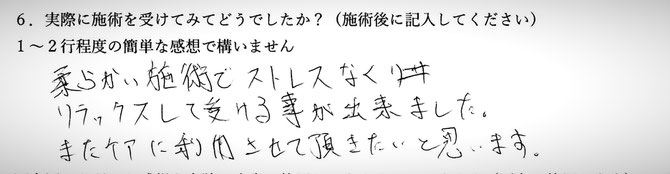 ６．実際に施術を受けてみてどうでしたか？（施術後に記入してください）
１～２行程度の簡単な感想で構いません
柔らかい施術でストレスなく
リラックスして受ける事が出来ました。
またケアに利用させて頂きたいと思います。